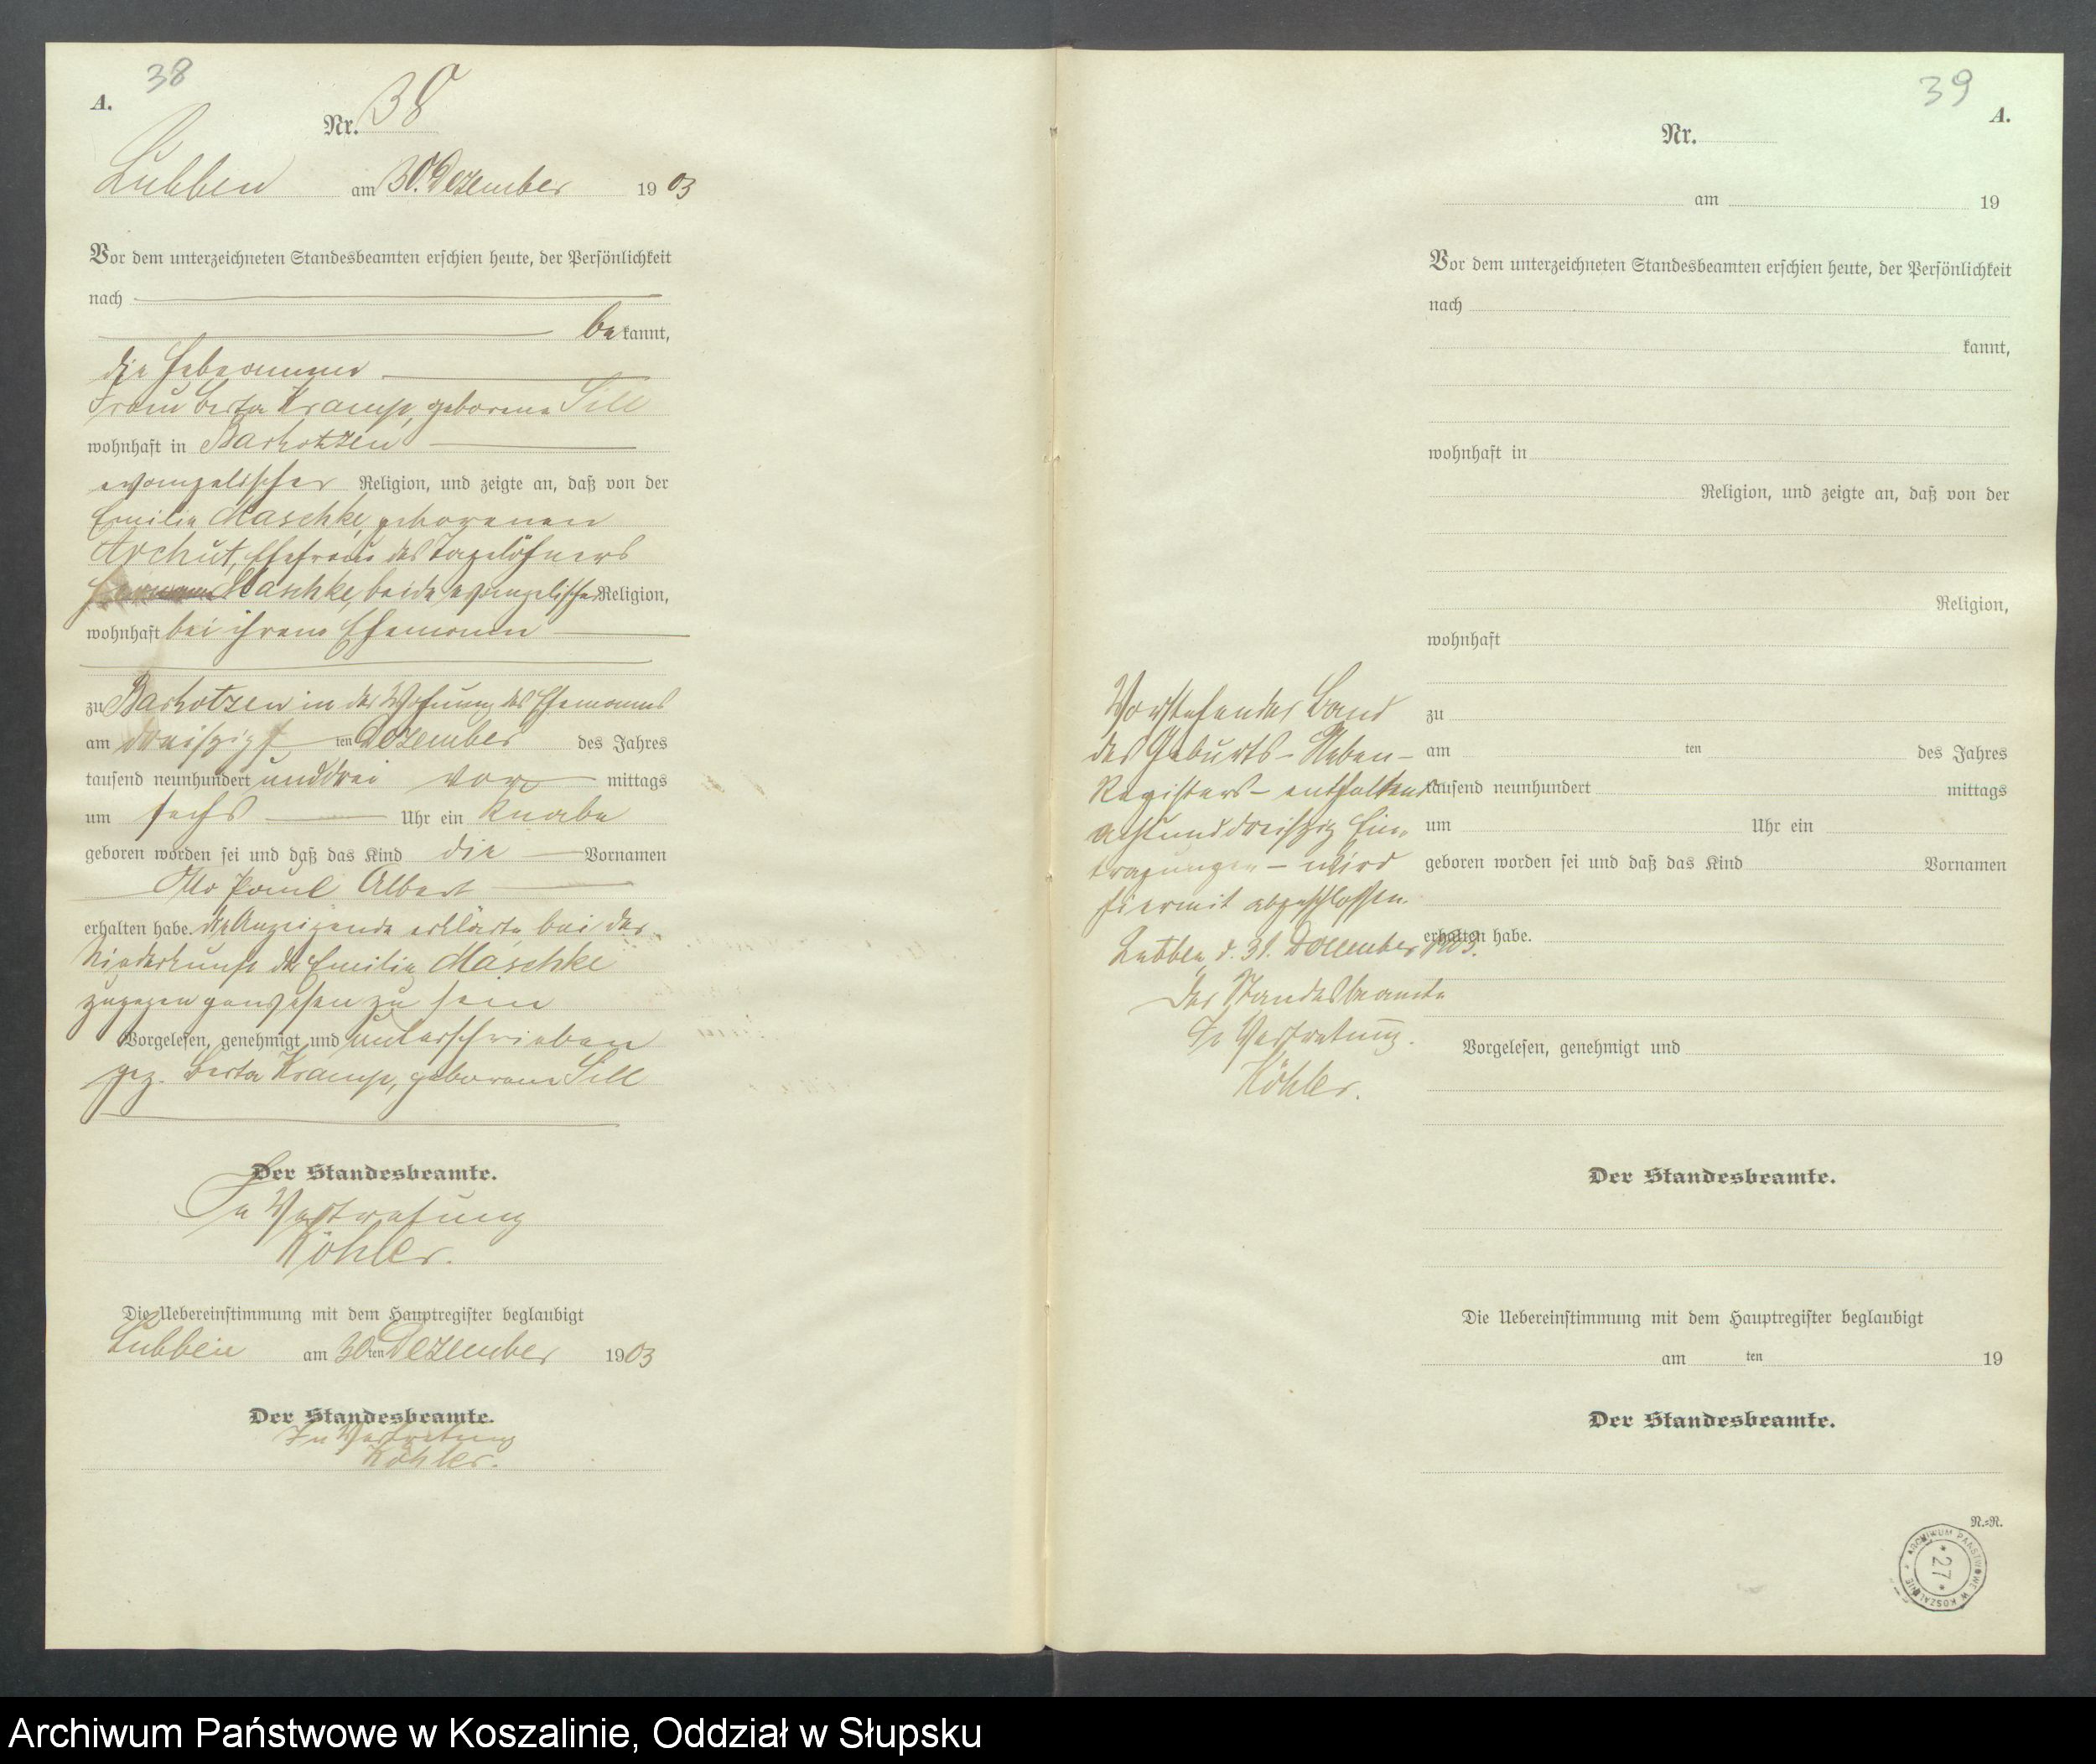 38
A.
Nr. 38
Lubben am 30. Dezember 1903
Vor dem unterzeichneten Standesbeamten erschien heute, der Persönlichkeit
nach
bekannt,
die Hebeamme
Frau Berta Kramp, geborene Sill
wohnhaft in Barkotzen
evangelischer Religion, und zeigte an, daß von der
Emilie Maschke, geborenen
Archut, Ehefrau des Tagelöhners
Maschke, beide evangelischer Religion,
wohnhaft bei ihrem Ehemann
zu Barkotzen in der Wohnung des Ehemannes
am dreißigsten Dezember des Jahres
tausend neunhundert und drei vormittags
um sechs Uhr ein Knabe
geboren worden sei und daß das Kind die Vornamen
Otto Paul Albert
erhalten habe. die Anzeigende erklärte bei der
Niederkunft der Emilie Maschke
zugegen gewesen zu sein
Vorgelesen, genehmigt und unterschrieben
gez. Berta Kramp, geborene Sill
Der Standesbeamte.
In Vertretung
Köhler.
Die Uebereinstimmung mit dem Hauptregister beglaubigt
Lubben am 30ten Dezember 1903
Der Standesbeamte.
In Vertretung
Köhler.
39
A.
Nr.
am 19
Vor dem unterzeichneten Standesbeamten erschien heute, der Persönlichkeit
nach
kannt,
wohnhaft in
Religion, und zeigte an, daß von der
Religion,
wohnhaft
zu
am ten des Jahres
tausend neunhundert mittags
um Uhr ein
geboren worden sei und daß das Kind Vornamen
erhalten habe.
Vorgelesen, genehmigt und
Der Standesbeamte.
Die Uebereinstimmung mit dem Hauptregister beglaubigt
am ten 19
Der Standesbeamte.
Vorstehender Band
des Geburts-Neben-
Registers - enthaltend
achtunddreißig Ein-
tragungen - wird
hiermit abgeschlossen.
Lubben, d. 31. Dezember 1903.
Der Standesbeamte
In Vertretung.
Köhler.
N.=R.
ARCHIWUM PAŃSTWOWE W KOSZALINIE
* 27 *
Archiwum Państwowe w Koszalinie, Oddział w Słupsku